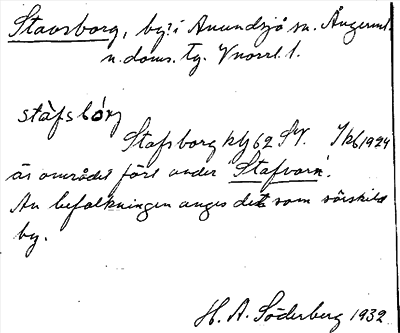 Stavsborg, by? i Anundsjö sn. Ångerml.
n. doms. Tg. Vnorrl. l.
stàfsbórj
Stafsborg kbg 62 SV. Jkb 1924
är området fört under Stafvarn.
Av befolkningen anges det som särskild
by.
H. A. Söderberg 1932